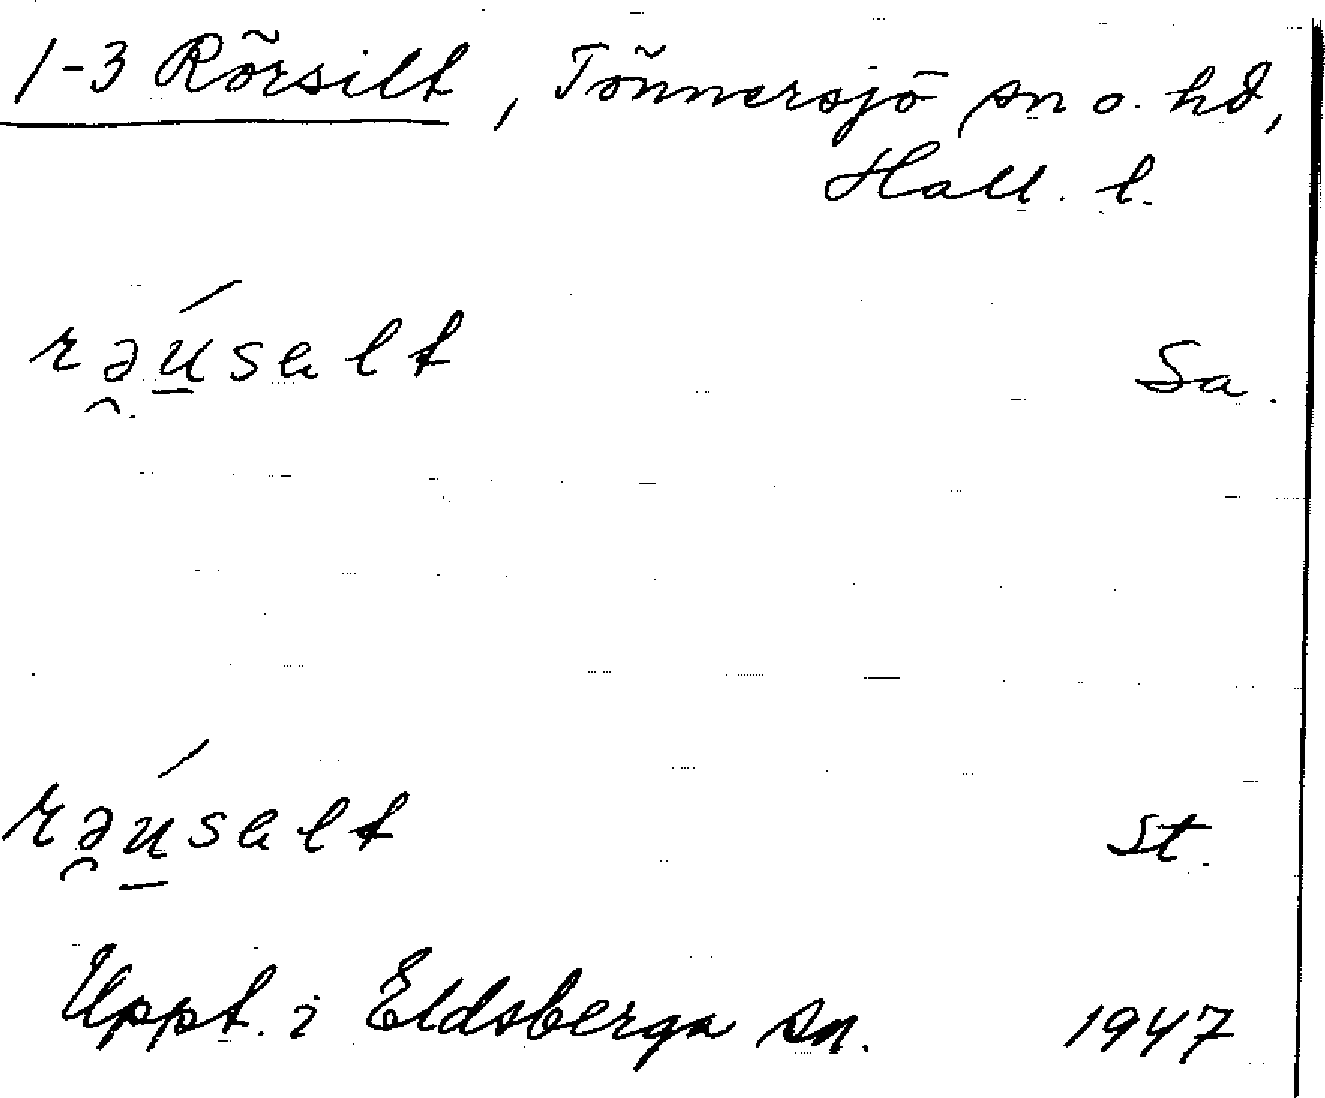 1-3 Rörsilt, Tönnersjö sn o. hd,
Hall. l.
rə̯ú̠salt Sa.
rə̯ú̠salt St.
Uppt. i Eldsberga sn. 1947